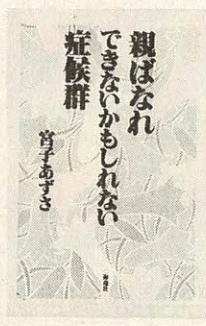 親ばなれ
できないかもしれない
症候群
宮子あずさ
海竜社